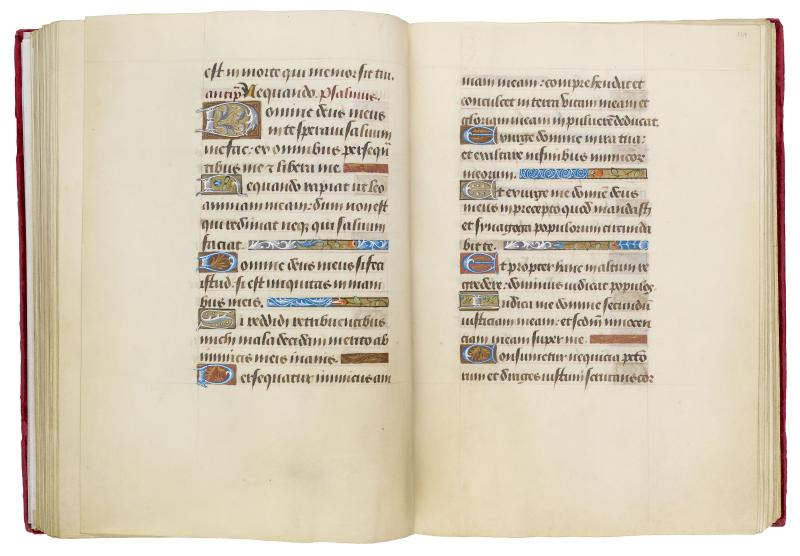 est in morte qui memor sit tui.
antiph Nequando. Psalmus.
Domine deus meus
in te speravi saluum
me fac: ex omnibus persequ
tibus me & libera me.
Nequando rapiat ut leo
animam meam: dum non est
qui redimat neq; qui saluum
faciat.
Domine deus meus si feci
istud: si est iniquitas in mani
bus meis.
Si reddidi retribuentibus
michi mala decidam merito ab
inimicis meis inanis.
Persequatur inimicus am
mam meam: comprehendat et
conculcet in terra vitam meam et
gloriam meam in pulverē deducat.
Exurge domine in ira tua:
et exaltare in finibus inimicor
meorum.
Et exurge me domie deus
meus in precepto quod mandasti
et synagoga populorum circunda
bit te.
Et propter hanc in altum re
gredere: dominus iudicat populos.
Iudica me domine secundū
iusticiam meam: et sedm innocen
ciam meam super me.
Consumetur nequicia pctō
rum et diriges iustum scrutans cor